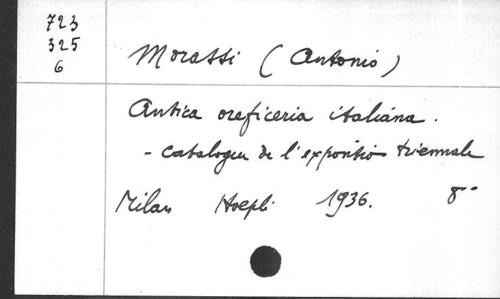 723
325
6
Morassi (Antonio)
Antica oreficeria italiana.
- Catalogue de l'exposition triennale
Milan Hoepli 1936. 8°